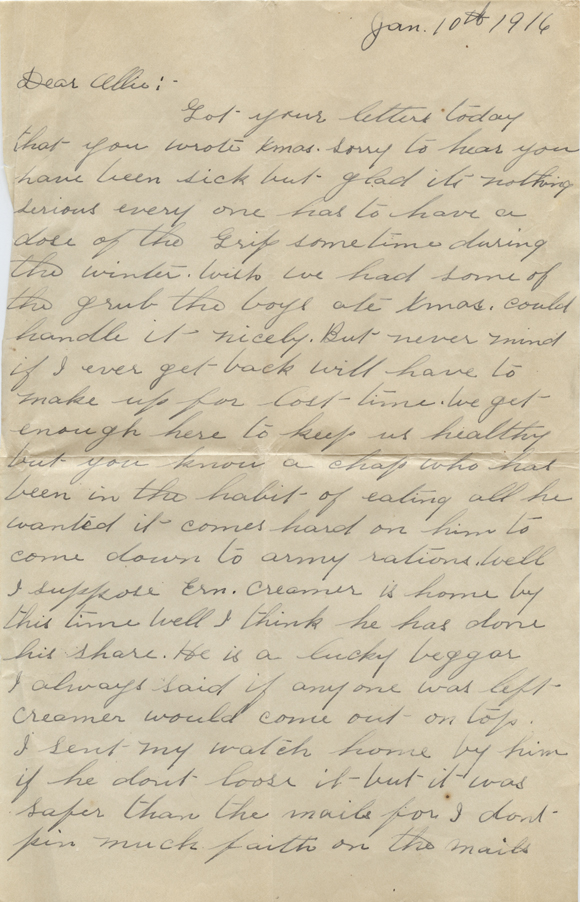 Jan. 10th 1916
Dear Allie:-
Got your letters today
that you wrote Xmas. sorry to hear you
have been sick but glad its nothing
serious every one has to have a
dose of the Grip sometime during
the winter. Wish we had some of
the grub the boys ate Xmas. could
handle it nicely. But never mind
if I ever get back will have to
make up for lost time. We get
enough here to keep us healthy
but you know a chap who has
been in the habit of eating all he
wanted it comes hard on him to
come down to army rations. Well
I suppose Ern. Creamer is home by
this time well I think he has done
his share. He is a lucky beggar
I always said if anyone was left
Creamer would come out on top.
I sent my watch home by him
if he dont loose it but it was
safer than the mails for I dont
pin much faith on the mails